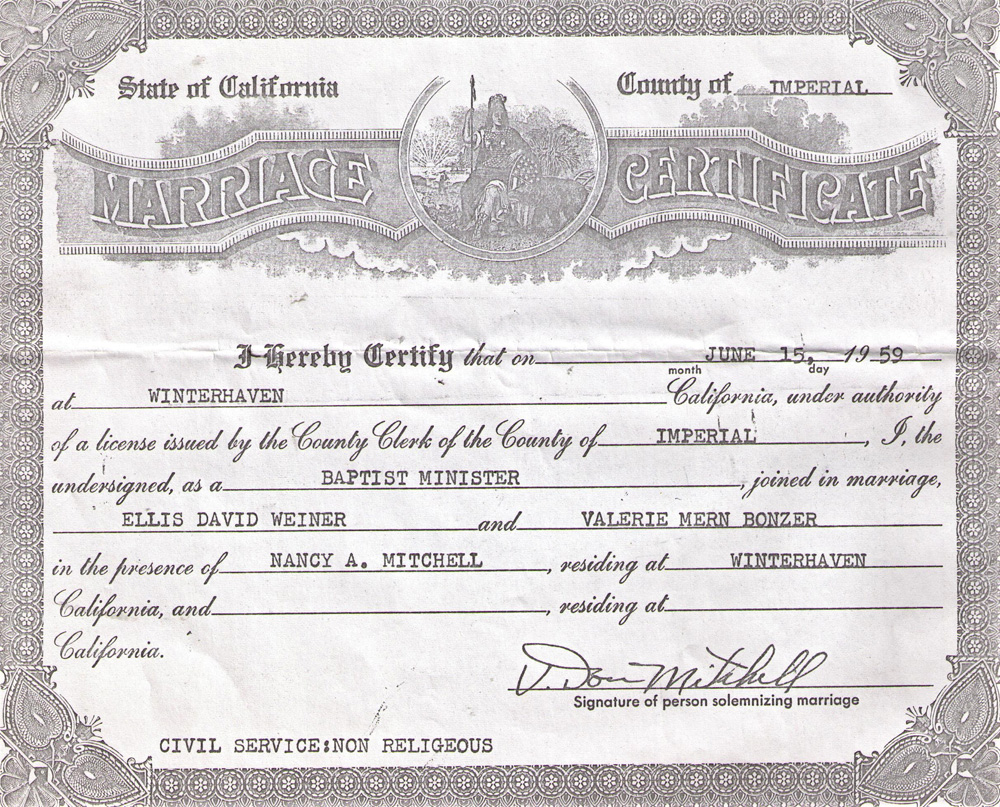 State of California County of IMPERIAL
MARRIAGE CERTIFICATE
I Hereby Certify that on JUNE 15, 19 59
month day
at WINTERHAVEN California, under authority
of a license issued by the County Clerk of the County of IMPERIAL, I, the
undersigned, as a BAPTIST MINISTER, joined in marriage,
ELLIS DAVID WEINER and VALERIE MERN BONZER
in the presence of NANCY A. MITCHELL, residing at WINTERHAVEN
California, and, residing at
California.
V. Don Mitchell
Signature of person solemnizing marriage
CIVIL SERVICE:NON RELIGEOUS